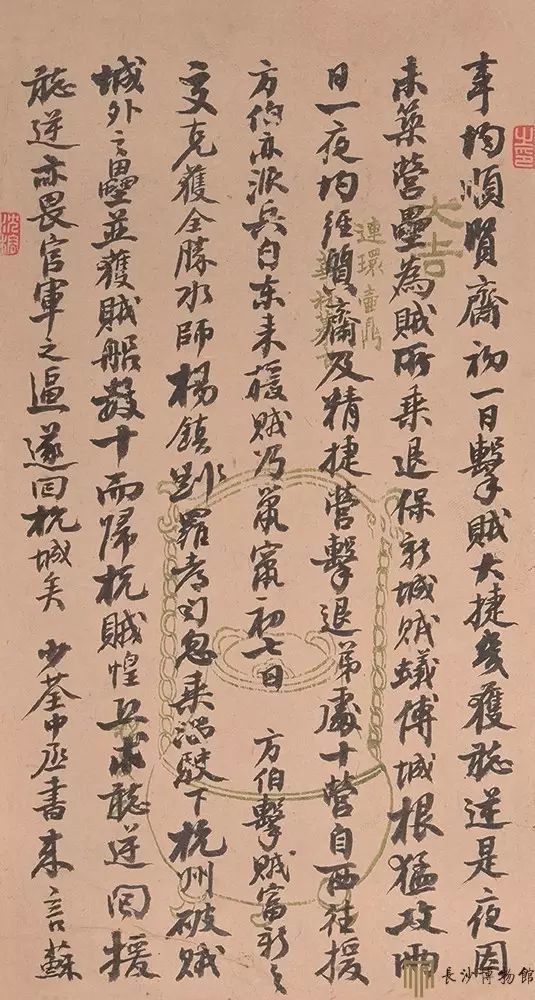 事均順賢齋初一日擊賊大捷幾獲聽逆是夜因
未築營壘為賊所乘退保新城賊蟻傅城根猛攻兩
日一夜均經賢齋及精捷營擊退弟處十營自西往援
方伯亦派兵自東來援賊乃鼠竄初七日 方伯擊賊富新之
交克獲全勝水師楊鎮羅乘潮駛下杭州破賊
城外壘並獲賊船數十而歸杭賊惶亟求聽逆回援
聽逆亦畏官軍之逼遂回杭城矣 少荃中丞書來言蘇
大吉
連環壺
之印
長沙博物館